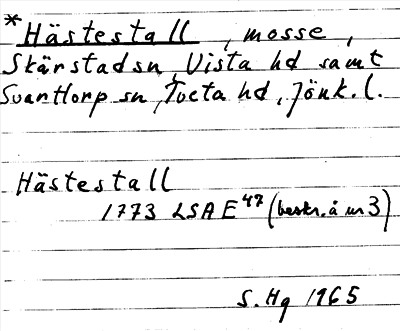 *Hästestall, mosse,
Skärstad sn, Vista hd samt
Svarttorp sn, Tveta hd, Jönk. l.
Hästestall
1773 LSA E 47 (beskr. å nr 3)
S. Hg 1965